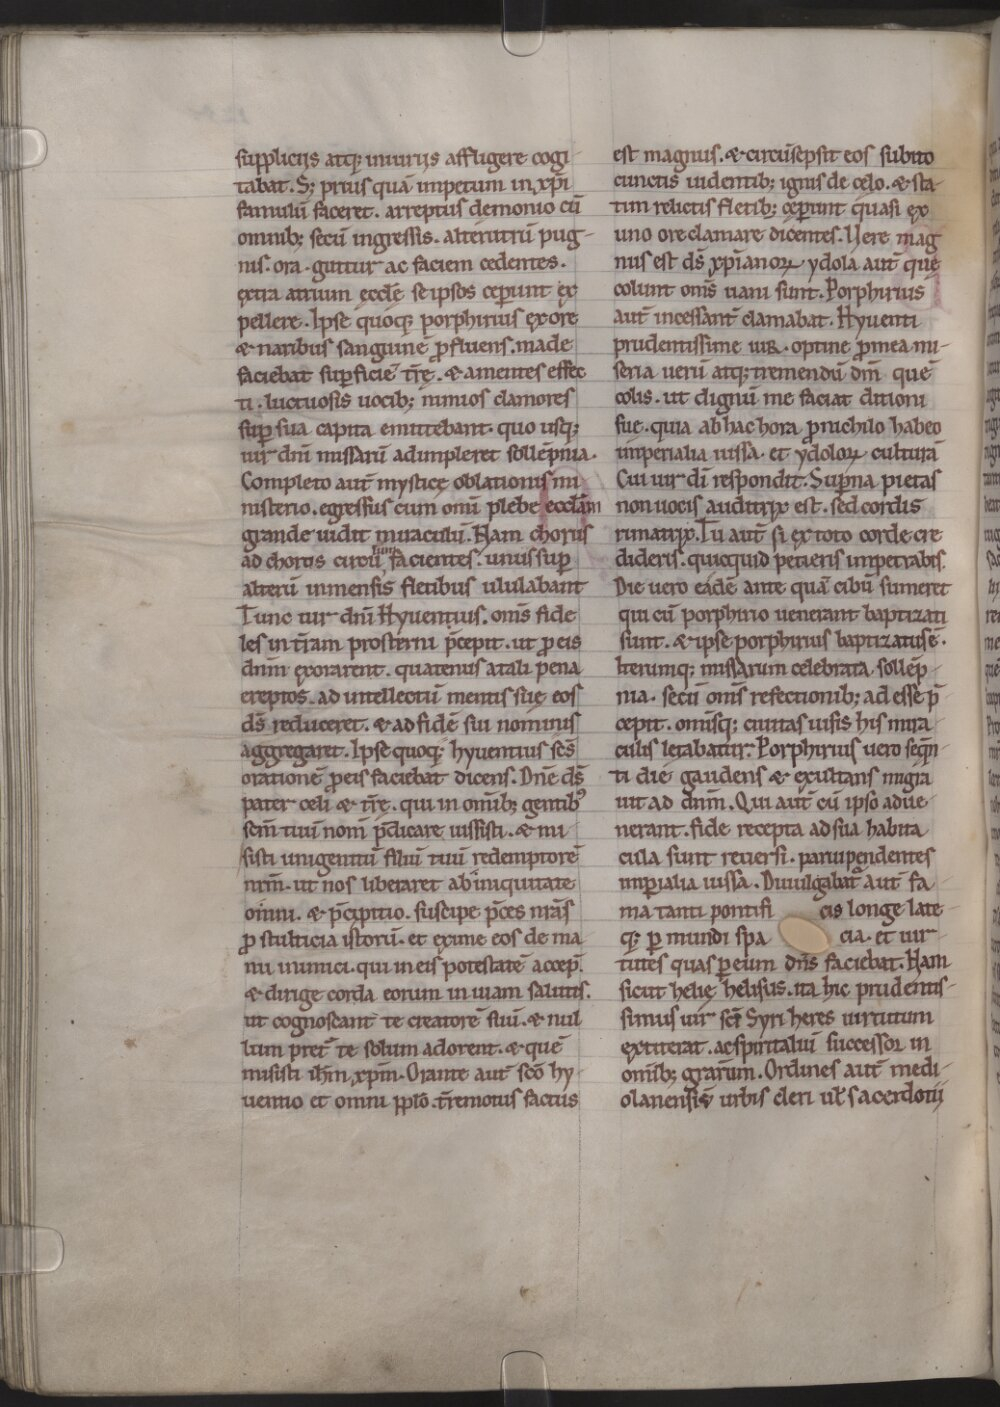 suppliciis atq; iniuriis affligere cogi
tabat. S; prius quā impetum in xp̄i
famulū faceret. arreptus demonio cū
omnib; secū ingressis. alterutrū pug
nis. ora. guttur ac faciem cedentes.
extra atrium eccl̄e se ipsos ceperunt ex
pellere. Ipse quoq; porphirius ex ore
& naribus sanguinē p̄fluens. made
faciebat sup̄ficiē tr̄ę. & amentes effec
ti. luctuosis uocib; nimios clamores
sup̄ sua capita emittebant. quo usq;
uir dn̄i missarū adimpleret sollēpnia.
Completo aut̄ mysticę oblationis mi
nisterio. egressus cum omni plebe eccl̄am
grande uidit miraculū. Nam chorus
ad chorus circū facientes. unus sup̄
alterū inmensis fletibus ululabant
Tunc uir dn̄i Hyuentius. om̄s fide
les in tr̄am prosterni p̄cepit. ut p̄ eis
dn̄m exorarent. quatenus a tali pena
ereptos. ad intellectū mentis suę eos
ds̄ reduceret. & ad fidē sui nominis
aggregaret. Ipse quoq; hyuentius sc̄s
orationē p̄ eis faciebat dicens. Dn̄e ds̄
pater celi & tr̄ę. qui in om̄ib; gentib;
sem̄ tuū nom̄ p̄dicare iussisti. & mi
sisti unigenitū filiū tuū redemptorē
nr̄m. ut nos liberaret ab iniquitate
omni. & p̄cipitio. suscipe p̄ces nr̄as
p̄ stulticia istorū. et exime eos de ma
nu inimici. qui in eis potestatē accep̄.
& dirige corda eorum in uiam salutis.
ut cognoscant te creatorē suū. & nul
lum pret̄ te solum adorent. & quē
misisti ih̄m xp̄m. Orante aut̄ sc̄o hy
uentio et omni pp̄lo. tr̄emotus factus
est magnus. & circūsepsit eos subito
cunctis uidentib; ignis de celo. & sta
tim relictis fletib; ceperunt quasi ex
uno ore clamare dicentes. Uere mag
nus est ds̄ xp̄ianoꝝ ydola aut̄ que
colunt om̄s uani sunt. Porphirius
aut̄ incessant̄ clamabat. Hyuenti
prudentissime uir. optine p̄ mea mi
seria uerū atq; tremendū dn̄m quē
colis. ut dignū me faciat ditioni
sue. quia ab hac hora p̄ nichilo habeo
imperialia iussa. et ydoloꝝ culturā
Cui uir dī respondit. Sup̄na pietas
non uocis auditrix est. sed cordis
rimatrix. Tu aut̄ si ex toto corde cre
dideris. quicquid petieris impetrabis.
Die uero eadē ante quā cibū sumeret
qui cū porphirio uenerant baptizati
sunt. & ipse porphirius baptizatus ē.
Iterumq; missarum celebrata sollēp
nia. secū om̄s refectionib; adesse p̄
cepit. omīsq; ciuitas uisis his mira
culis letabatur. Porphirius uero seq̄n
ti die gaudens & exultans migra
uit ad dn̄m. Qui aut̄ cū ipso adue
nerant. fide recepta ad sua habita
cula sunt reuersi. paruipendentes
imp̄ialia iussa. Diuulgabat᷑ aut̄ fa
ma tanti pontifi cis longe late
q; p̄ mundi spa cia. et uir
tutes quas p̄ eum dn̄s faciebat. Nam
sicut helię helisus. ita hic prudentis
simus uir sc̄i Syri heres uirtutum
extiterat. ac spiritaliū successor in
om̄ib; gr̄arum. Ordines aut̄ medi
olanensis urbis cleri ul̄ sacerdotii